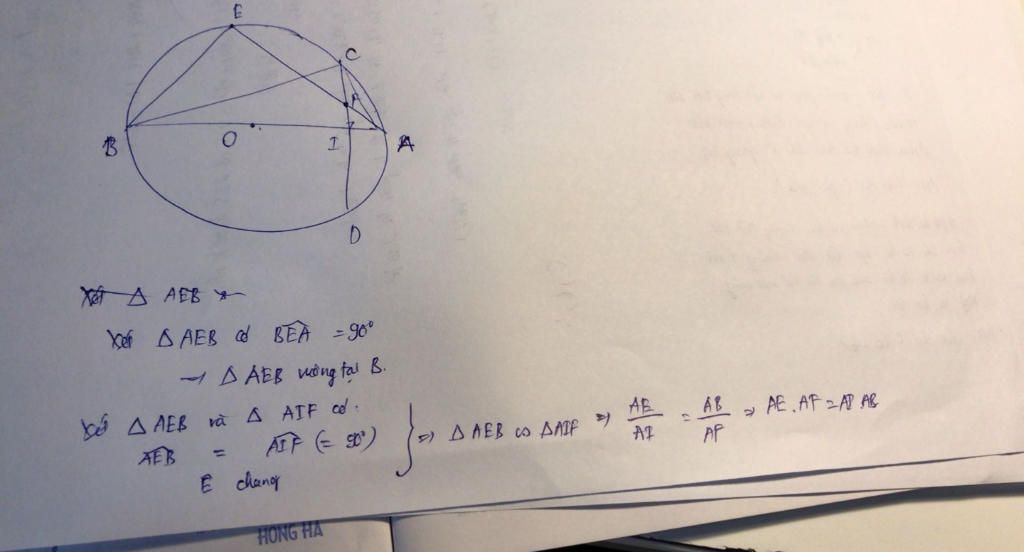 E
C
F
B
O
I
A
D
Xét △ AEB
Xét △ AEB có BEA = 90°
→ △ AEB vuông tại B.
Xét △ AEB và △ AIF có:
AEB = AIF (= 90°)
E chung
⇒ △ AEB ∽ △AIF ⇒ AE/AI = AB/AF ⇒ AE.AF = AI.AB
HONG HA